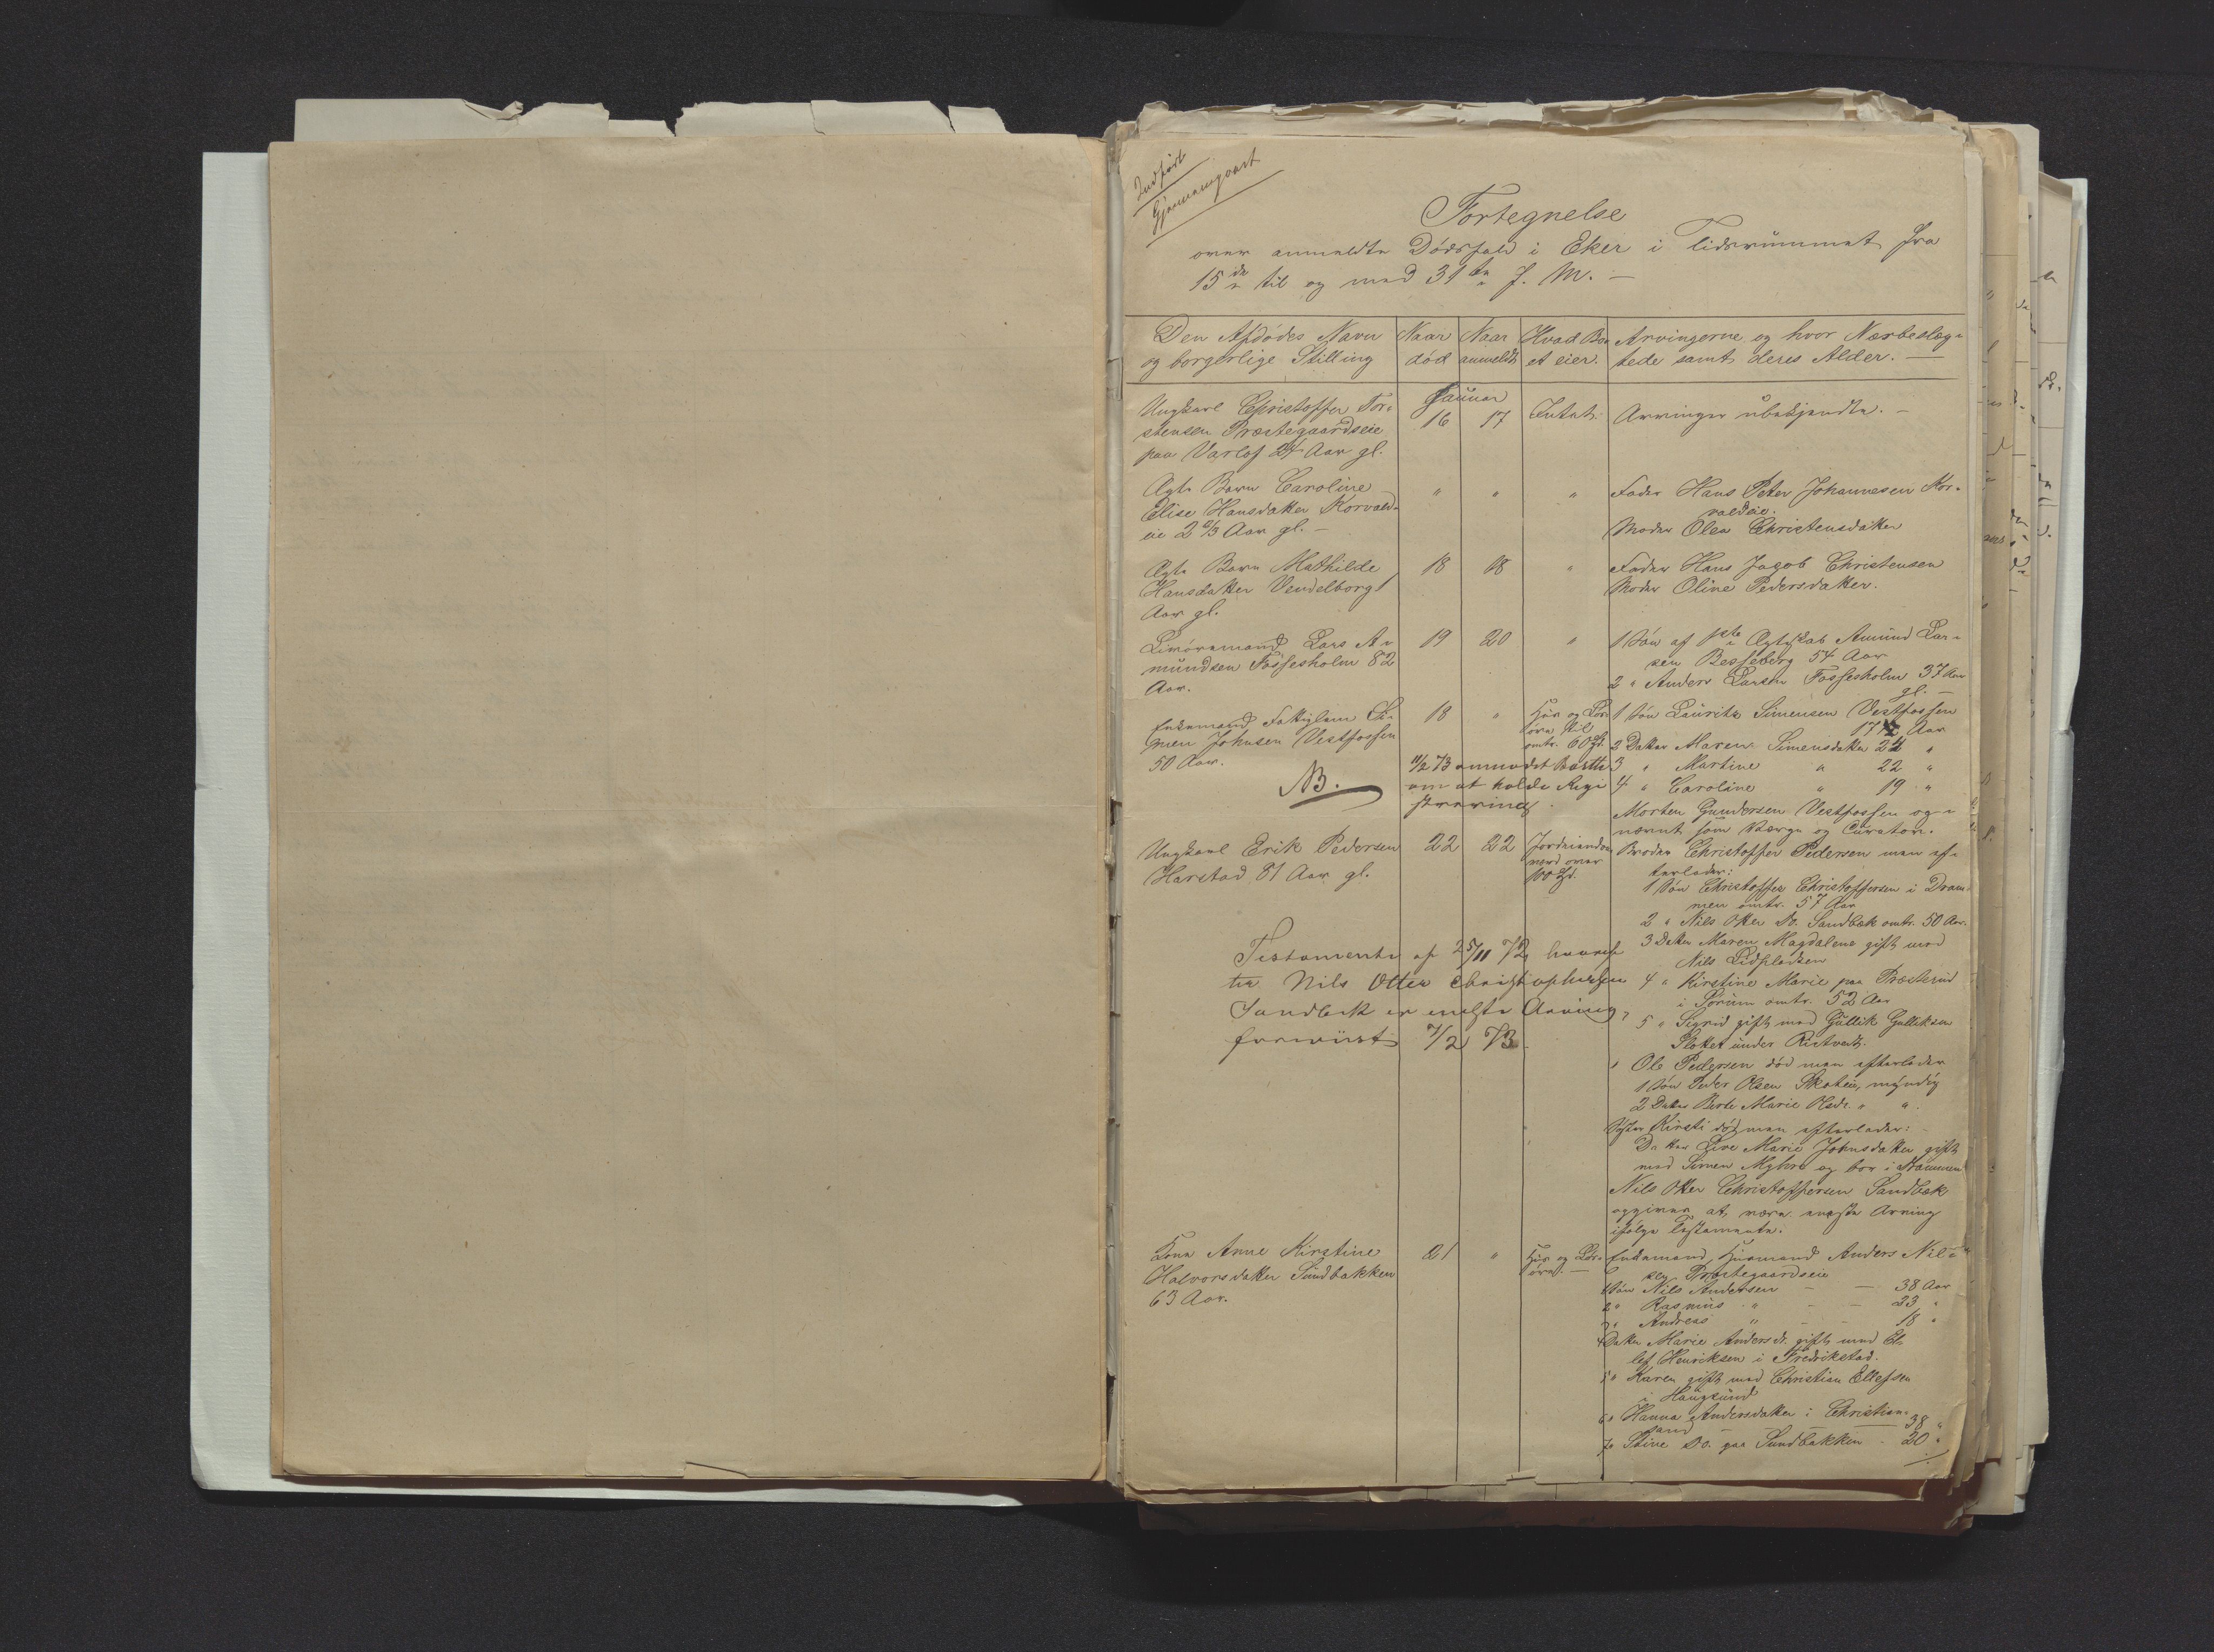 Indført
Gjennemgaaet
Fortegnelse
over anmeldte Dødsfald i Eker i Tidsrummet fra
15de til og med 31te f. M. –
Den Afdødes Navn
og borgerlige Stilling
Naar
død
Naar
anmeldt
Hvad Bo-
et eier.
Arvingerne og hvor Nærbeslæg-
tede samt deres Alder. –
Januar
Ungkarl Christoffer Tor-
stensen Præstegaardseie
paa Varlof 24 Aar gl.
16
17
Intet
Arvinger ubekjendte. –
Ægte Barn Caroline
Elise Hansdatter Korvald-
eie 2 Aar gl. –
"
"
"
Fader Hans Peter Johannesen Kor-
valdeie.
Moder Olea Christensdatter
Ægte Barn Mathilde
Hansdatter Vendelborg 1
Aar gl.
18
18
"
Fader Hans Jacob Christensen
Moder Oline Pedersdatter.
Livøremand Lars A-
mundsen Fossesholm 82
Aar.
19
20
"
1 Søn af 1ste Ægteskab Amund Lar-
sen Besseberg 54 Aar
2 " Anders Larsen Fossesholm 37 Aar
gl. –
Enkemand Fattiglem Si-
men Johnsen Vestfossen
50 Aar.
18
"
Hus og Løs-
øre til
omtr. 60 Spd.
1 Søn Lauritz Simensen Vestfossen
17 Aar
2 Datter Maren Simensdatter 24 "
3 " Martine " 22 "
4 " Caroline " 19 "
Morten Gundersen Vestfossen op-
nævnt som Værge og Curator.
NB.
11/2 73 anmodet
om at holde Regi-
strering.
Ungkarl Erik Pedersen
Harstad 81 Aar gl.
22
22
Jordeiendom
værd over
100 Spd.
Broder Christoffer Pedersen men ef-
terlader:
1 Søn Christoffer Christoffersen i Dram-
men omtr. 57 Aar
2 " Nils Otter Do. Sandbæk omtr. 50 Aar.
3 Datter Maren Magdalene gift med
Nils Lidpladsen
4 " Kirstine Marie paa Præsterud
i Sørum omtr. 52 Aar
5 " Sigrid gift med Gullik Gulliksen
Slottet under Ristvedt.
" Ole Pedersen død men efterlader
1 Søn Peder Olsen Skoteie, myndig
2 Datter Berte Marie Olsdr. " "
Søster Kirsti død men efterlader:
Datter Live Marie Johnsdatter gift
med Simen Myhre og bor i Drammen
Nils Otter Christoffersen Sandbæk
opgiver at være eneste Arving
ifølge Testamente.
Testamente af 25/11 72, hvoref-
ter Nils Otter Christophersen
Sandbek er eneste Arving,
forevist 7/2 73.
Kone Anne Kirstine
Halvorsdatter Sundbakken
63 Aar.
21
"
Hus og Løs-
øre. –
Enkemand Husmand Anders Nil-
sen Præstegaardseie
1 Søn Nils Andersen – – 38 Aar
2 " Rasmus " – – 33 "
3 " Andreas " – – 18 "
4 Datter Marie Andersdr. gift med El-
lef Henriksen i Fredrikstad.
5 " Karen gift med Christian Ellefsen
i Haugsund
6 " Hanna Andersdatter i Christian-
sand – 38 "
7 " Stine Do. paa Sundbakken – 20 "